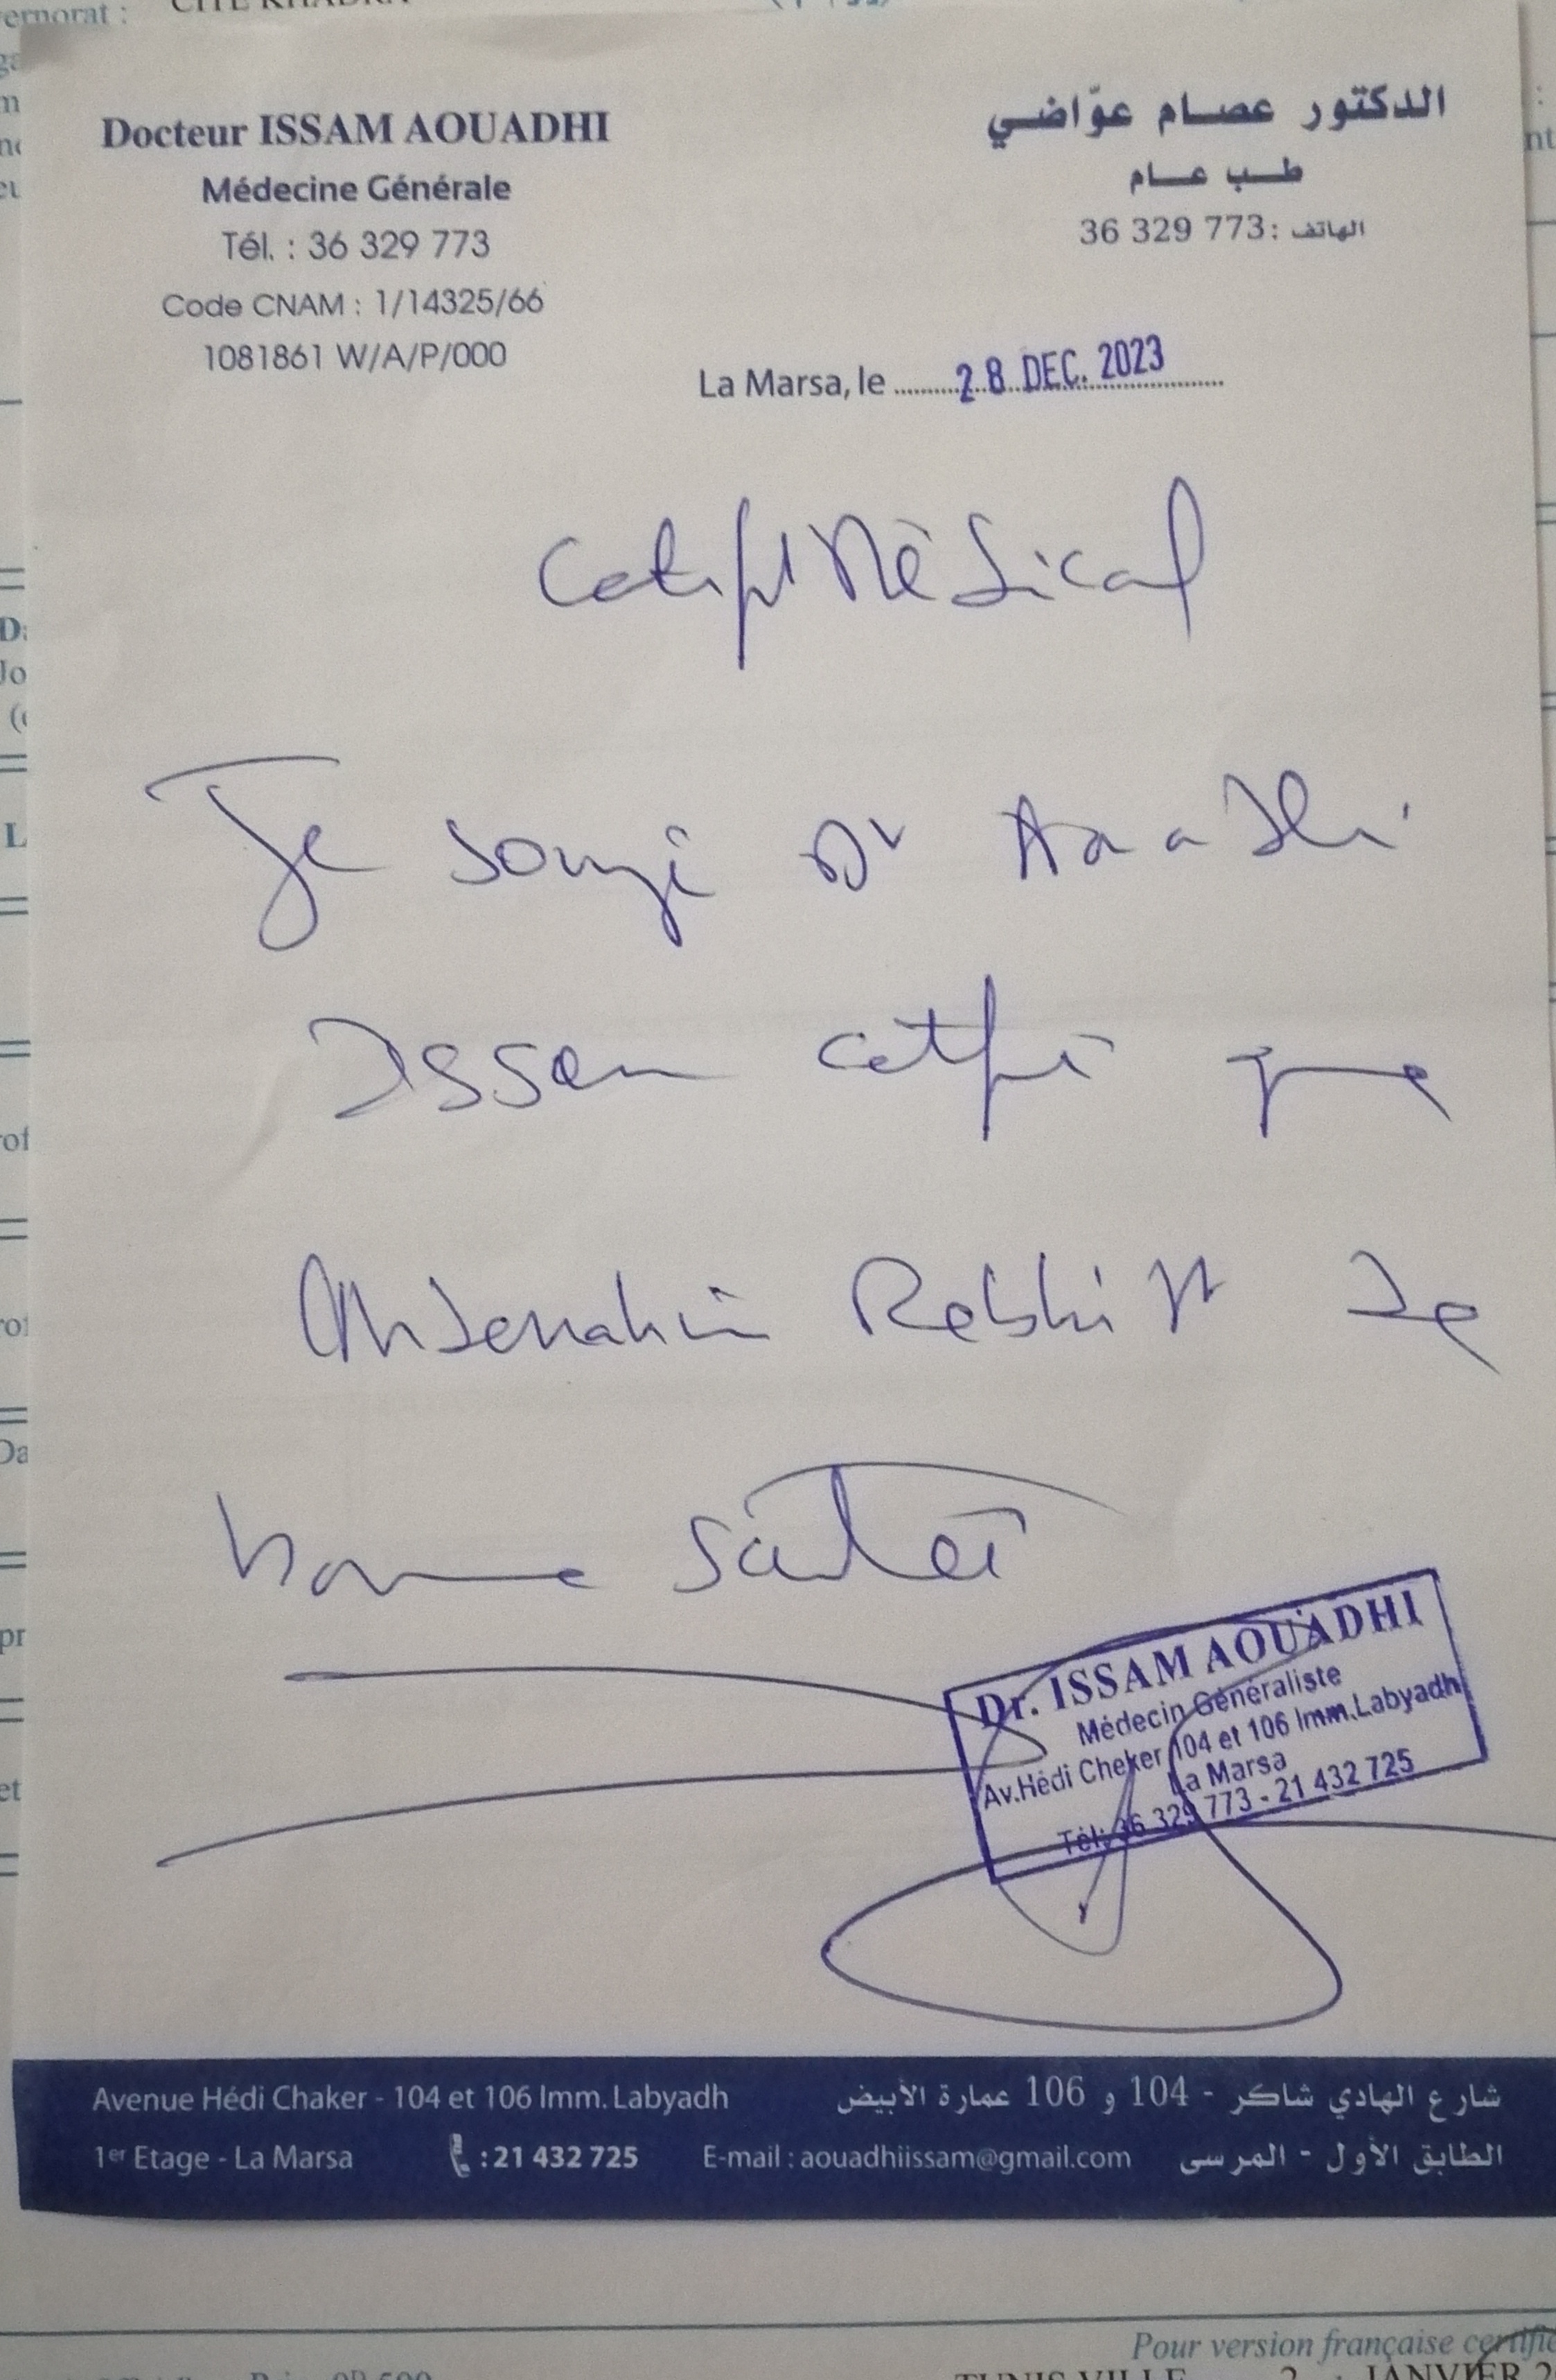 vernorat :
Docteur ISSAM AOUADHI
Médecine Générale
Tél. : 36 329 773
Code CNAM : 1/14325/66
1081861 W/A/P/000
الدكتور عصام عوّاضي
طب عام
الهاتف : 36 329 773
La Marsa, le 28 DEC. 2023
Certificat Médical
Je soussigné Dr Aouadhi
Issam certifie que
Abderrahim Rebhi est de
bonne santé
Dr. ISSAM AOUADHI
Médecin Généraliste
Av.Hédi Cheker 104 et 106 Imm.Labyadh
La Marsa
Tél: 36 329 773 - 21 432 725
Avenue Hédi Chaker - 104 et 106 Imm. Labyadh
1er Etage - La Marsa : 21 432 725 E-mail : aouadhiissam@gmail.com
شارع الهادي شاكر - 104 و 106 عمارة الأبيض
الطابق الأول - المرسى
Pour version française certifié